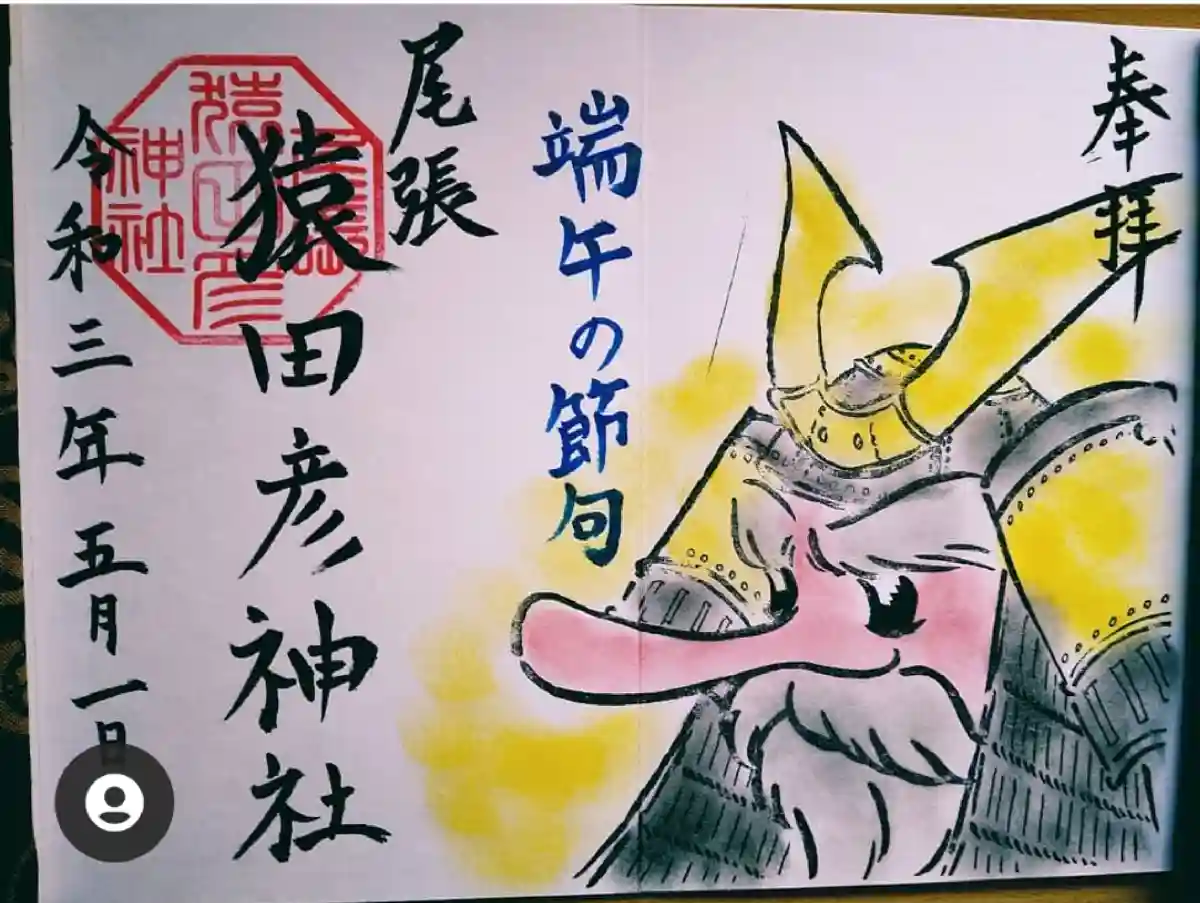 奉拝
端午の節句
尾張
猿田彦神社
令和三年五月一日